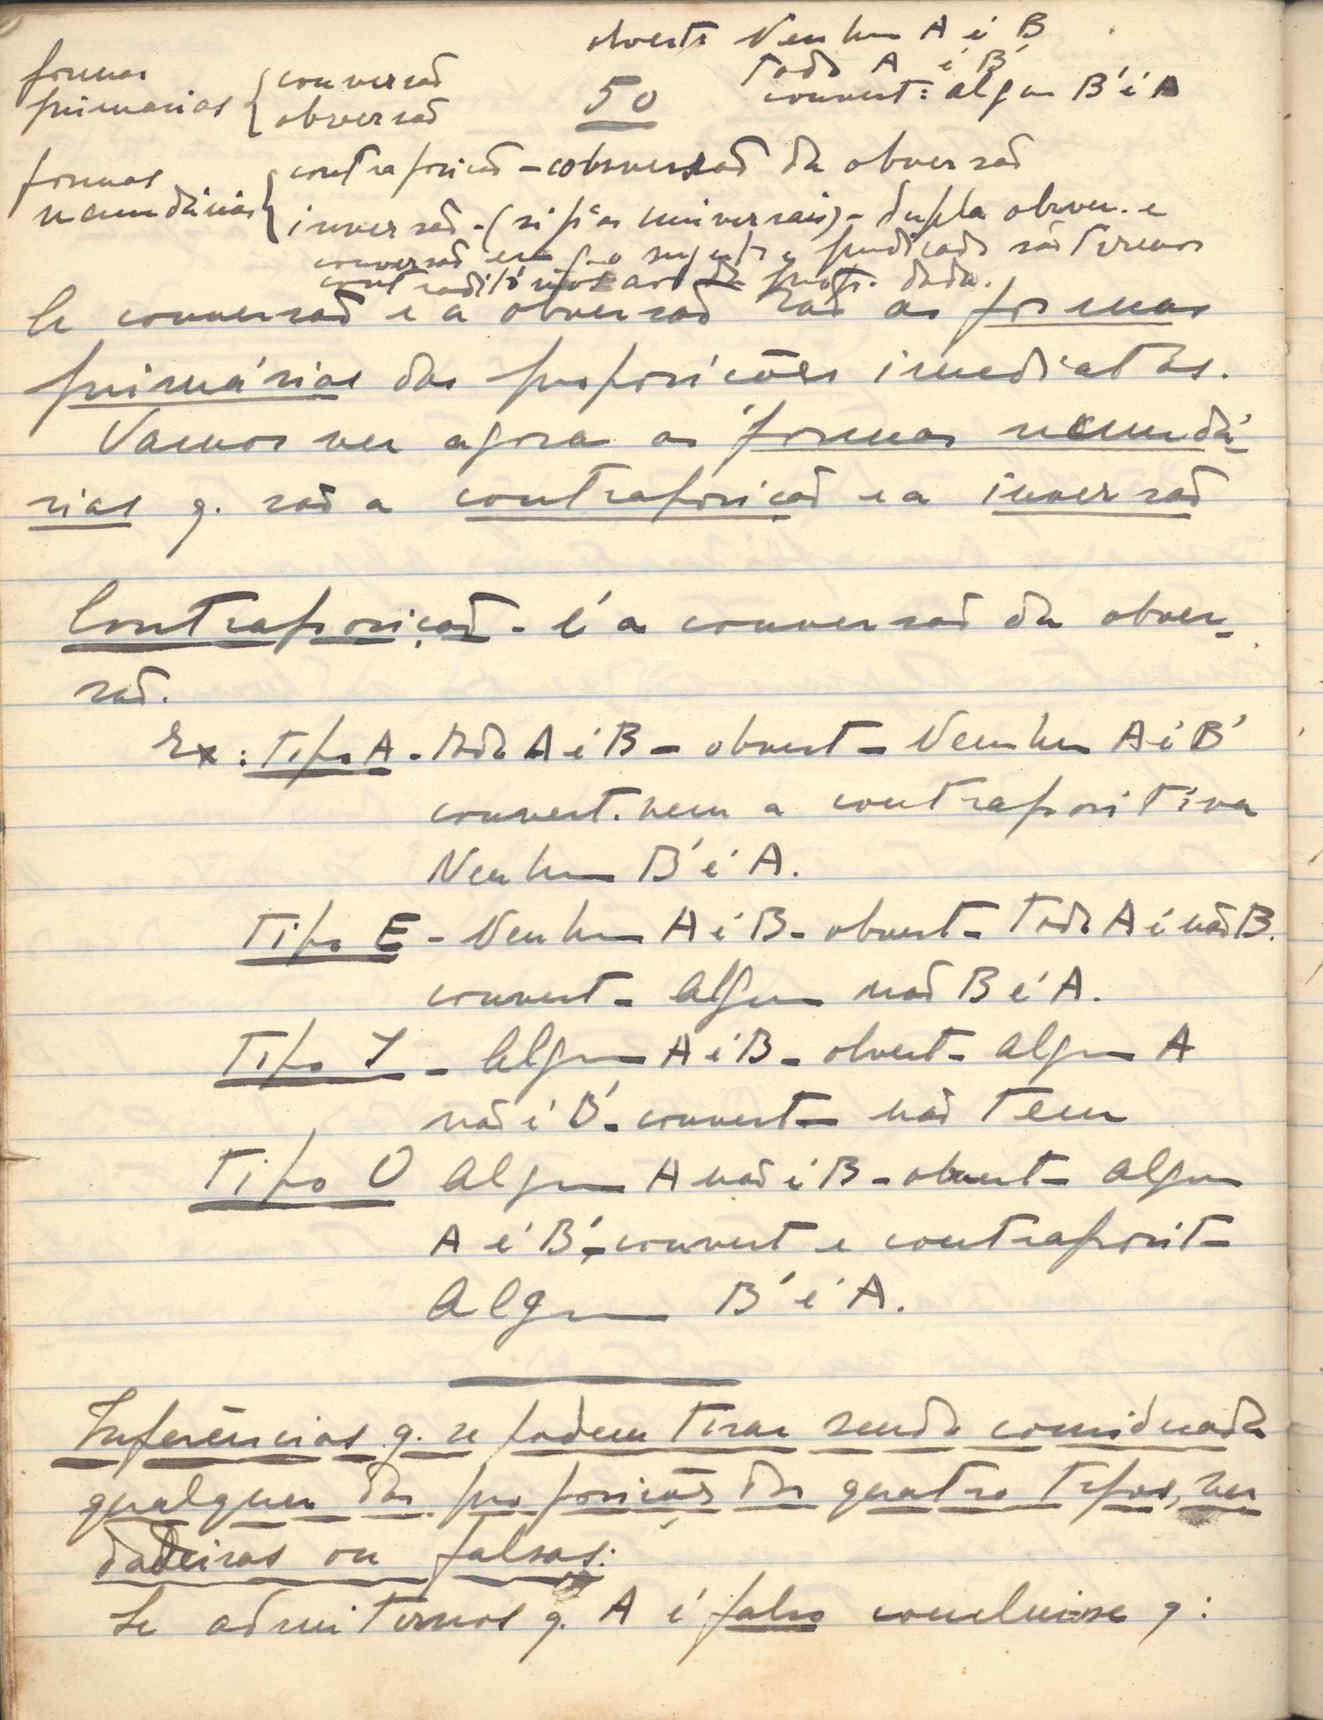 obverte Nenhum A é B
Todo A é B'
convert: algum B' é A
50
formas
primarias
conversão
obversão
formas
secundárias
contraposição - conversão da obversão
inversão - (si pª as universais) - dupla obver. e
conversão em q. o sujeito e predicado são termos
contraditórios aos da prop. dada.
A conversão e a obversão são as formas
primárias das proposições imediatas.
Vamos ver agora as formas secundá-
rias q. são a contraposição e a inversão
Contraposição - é a conversão da obver-
são.
Ex: Tipo A - Todo A é B - obvert - Nenhum A é B'
convert. vem a contrapositiva
Nenhum B' é A.
Tipo E - Nenhum A é B - obvert - Todo A é não B.
convert - Algum não B é A.
Tipo I - Algum A é B - obvert - Algum A
não é B' - convert - não tem
Tipo O Algum A não é B - obvert - Algum
A é B' - convert e contraposit -
Algum B' é A.
Inferências q. se podem tirar sendo considerada
qualquer das proposições dos quatro tipos, ver
dadeiras ou falsas:
Se admitirmos q. A é falso conclui-se q: